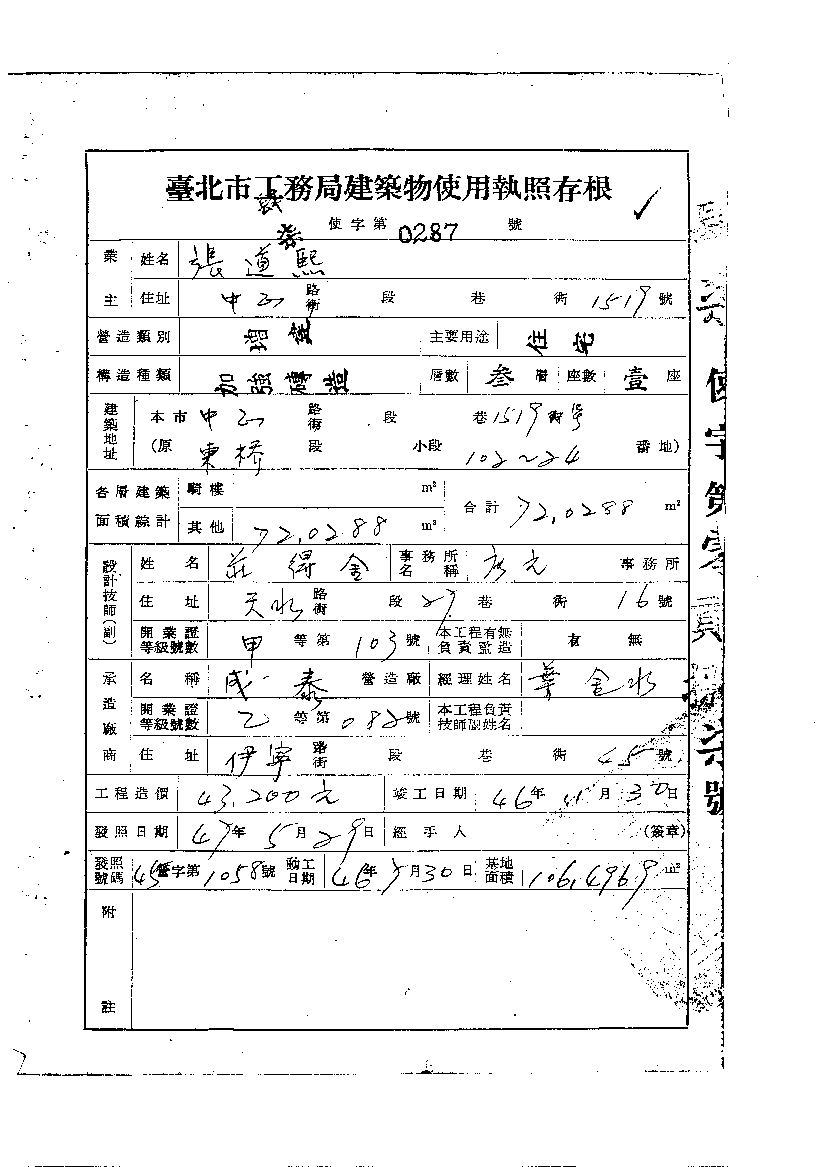 臺北市工務局建築物使用執照存根
使字第 0287 號
業主 姓名 張道熙
住址 中山 路街 段 巷 衖 1519 號
營造類別 增建 主要用途 住宅
構造種類 加強磚造 層數 叁 層 座數 壹 座
建築地址 本市 中山 路街 段 巷 1519 衖號
(原 東橋 段 小段 102~24 番地)
各層建築面積綜計 騎樓 m² 合計 72,0288 m²
其他 72,0288 m²
設計技師(副) 姓名 莊得金 事務所名稱 彥元 事務所
住址 天水 路街 段 27 巷 衖 16 號
開業證等級號數 甲 等第 103 號 本工程有無負責監造 有 無
承造廠商 名稱 成泰 營造廠 經理姓名 葉金水
開業證等級號數 乙 等第 082 號 本工程負責技師副姓名
住址 伊寧 路街 段 巷 衖 45 號
工程造價 43,200元 竣工日期 46年 11月 30日
發照日期 47年 5月 29日 經手人 (簽章)
發照號碼 45營字第 1058號 動工日期 46年 7月 30日 基地面積 106,4969 m²
附註
使字第零貳捌柒號